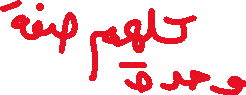 كلهم صفة
وحدة